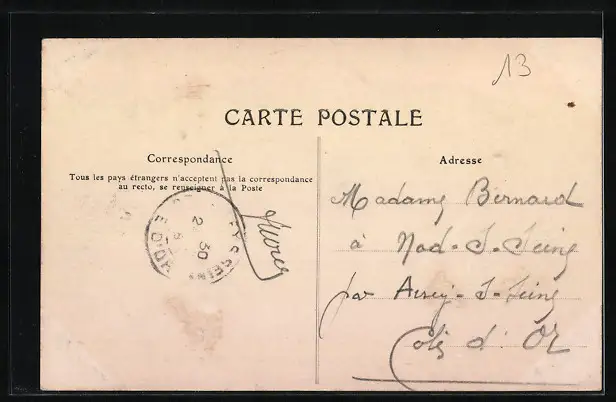 13
CARTE POSTALE
Correspondance
Tous les pays étrangers n'acceptent pas la correspondance
au recto, se renseigner à la Poste
Adresse
Madame Bernard
à Nod-s-Seine
par Aisey-s-Seine
Côte d'Or